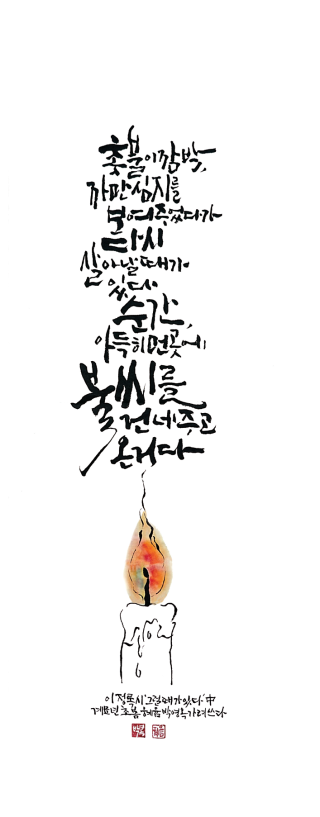 촛불이 깜박,
까만 심지를
보여주었다가
다시
살아날 때가
있다.
순간,
아득히 먼 곳에
불씨를
건네주고
온 거다
이정록시 '그럴 때가 있다' 中
계묘년 초봄 혜윰 박영옥 가려쓰다